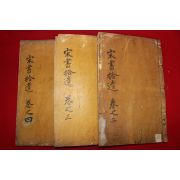 宋書拾遺 卷之二
宋書拾遺 卷之三
宋書拾遺 卷之四